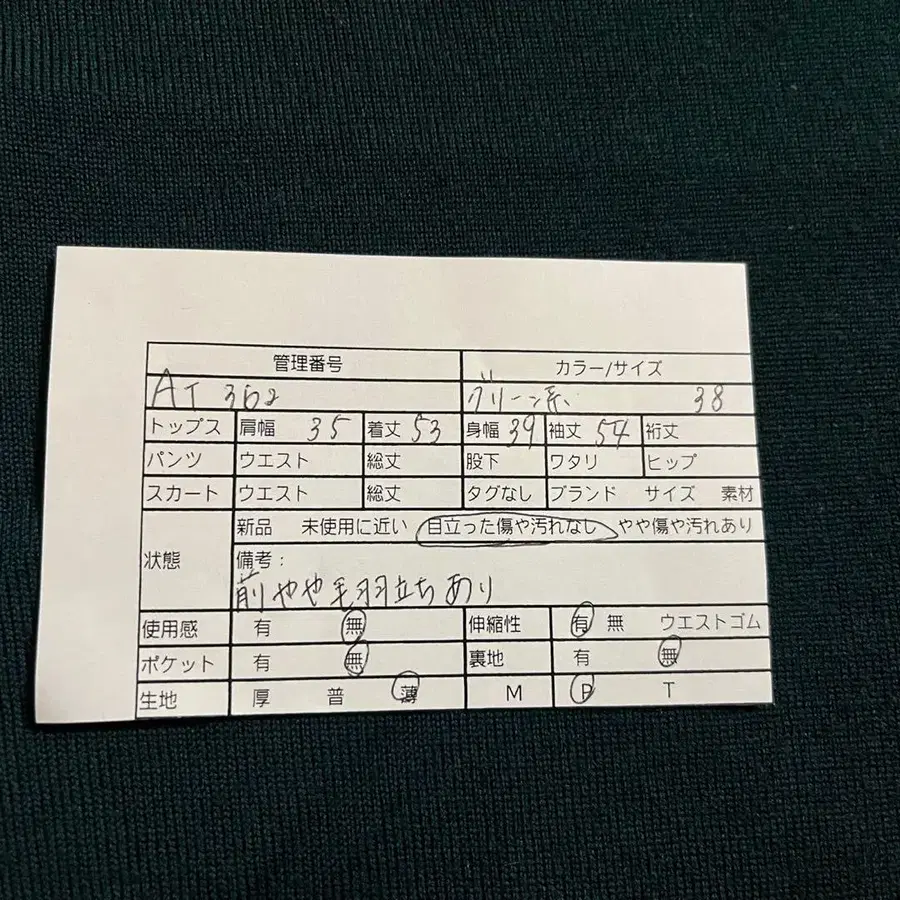 管理番号 カラー/サイズ
AT 362 グリーン系 38
トップス 肩幅 35 着丈 53 身幅 39 袖丈 54 裄丈
パンツ ウエスト 総丈 股下 ワタリ ヒップ
スカート ウエスト 総丈 タグなし ブランド サイズ 素材
状態 新品 未使用に近い 目立った傷や汚れなし やや傷や汚れあり
備考:
前やや毛羽立ちあり
使用感 有 無 伸縮性 有 無 ウエストゴム
ポケット 有 無 裏地 有 無
生地 厚 普 薄 M P T